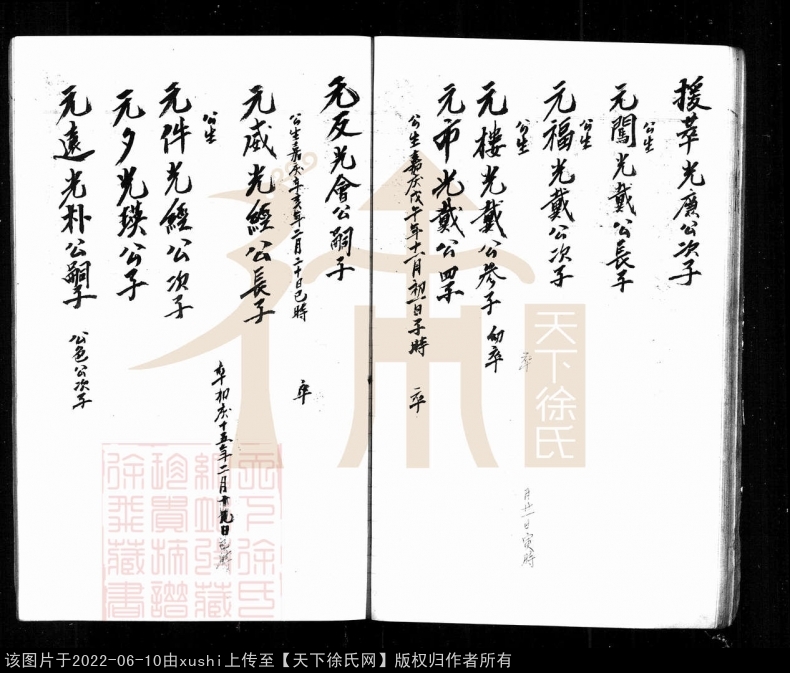 援萃光廣公次子
元闖光戴公長子
公生
元福光戴公次子
公生
元樓光戴公叁子 幼卒
公生
元帀光戴公四子
公生嘉庆戊午年十一月初一日子時 卒
元反光會公嗣子
公生嘉庆辛亥年二月二十日巳時 卒
元威光經公長子
卒初庆十五年二月十九日巳時
元件光經公次子
公生
元夕光瑛公子
元遠光朴公嗣子
公色公次子
月廿一日寅時
天下徐氏
天下徐氏
珍貴
徐
藏書
该图片于2022-06-10由xushi上传至【天下徐氏网】版权归作者所有